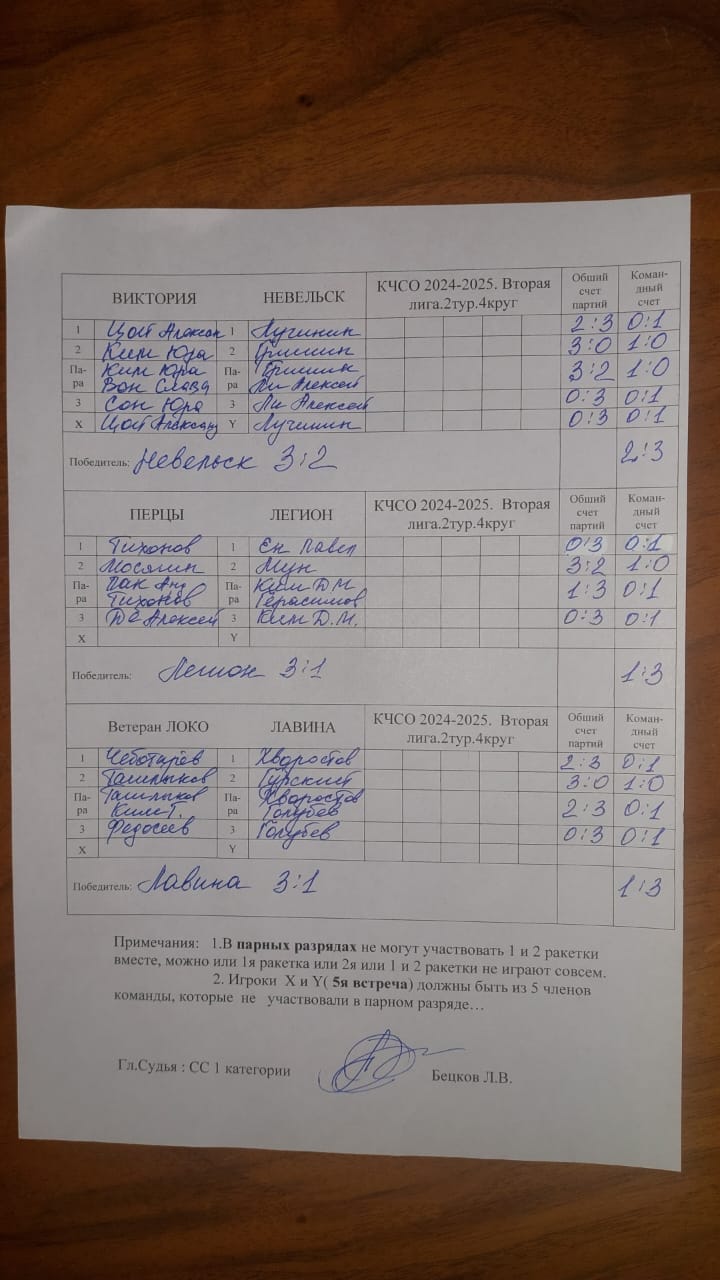 ВИКТОРИЯ НЕВЕЛЬСК КЧСО 2024-2025. Вторая лига.2тур.4круг Общий счет партий Коман-дный счет
1 Цой Алексан 1 Лучинин 2:3 0:1
2 Ким Юра 2 Гришин 3:0 1:0
Па-ра Ким Юра Па-ра Гришин 3:2 1:0
Вон Слава Ли Алексей
3 Сон Юра 3 Ли Алексей 0:3 0:1
X Цой Александ Y Лучинин 0:3 0:1
Победитель: Невельск 3:2 2:3
ПЕРЦЫ ЛЕГИОН КЧСО 2024-2025. Вторая лига.2тур.4круг Общий счет партий Коман-дный счет
1 Тихонов 1 Ен Павел 0:3 0:1
2 Мосягин 2 Мун 3:2 1:0
Па-ра Пак Анд Па-ра Ким Д.М. 1:3 0:1
Тихонов Герасимов
3 Де Алексей 3 Ким Д.М. 0:3 0:1
X Y
Победитель: Легион 3:1 1:3
Ветеран ЛОКО ЛАВИНА КЧСО 2024-2025. Вторая лига.2тур.4круг Общий счет партий Коман-дный счет
1 Чеботарёв 1 Хворостов 2:3 0:1
2 Ташлыков 2 Гурский 3:0 1:0
Па-ра Ташлыков Па-ра Хворостов 2:3 0:1
Ким Г. Голубев
3 Федосеев 3 Голубев 0:3 0:1
X Y
Победитель: Лавина 3:1 1:3
Примечания: 1.В парных разрядах не могут участвовать 1 и 2 ракетки
вместе, можно или 1я ракетка или 2я или 1 и 2 ракетки не играют совсем.
2. Игроки X и Y( 5я встреча) должны быть из 5 членов
команды, которые не участвовали в парном разряде…
Гл.Судья : СС 1 категории Бецков Л.В.